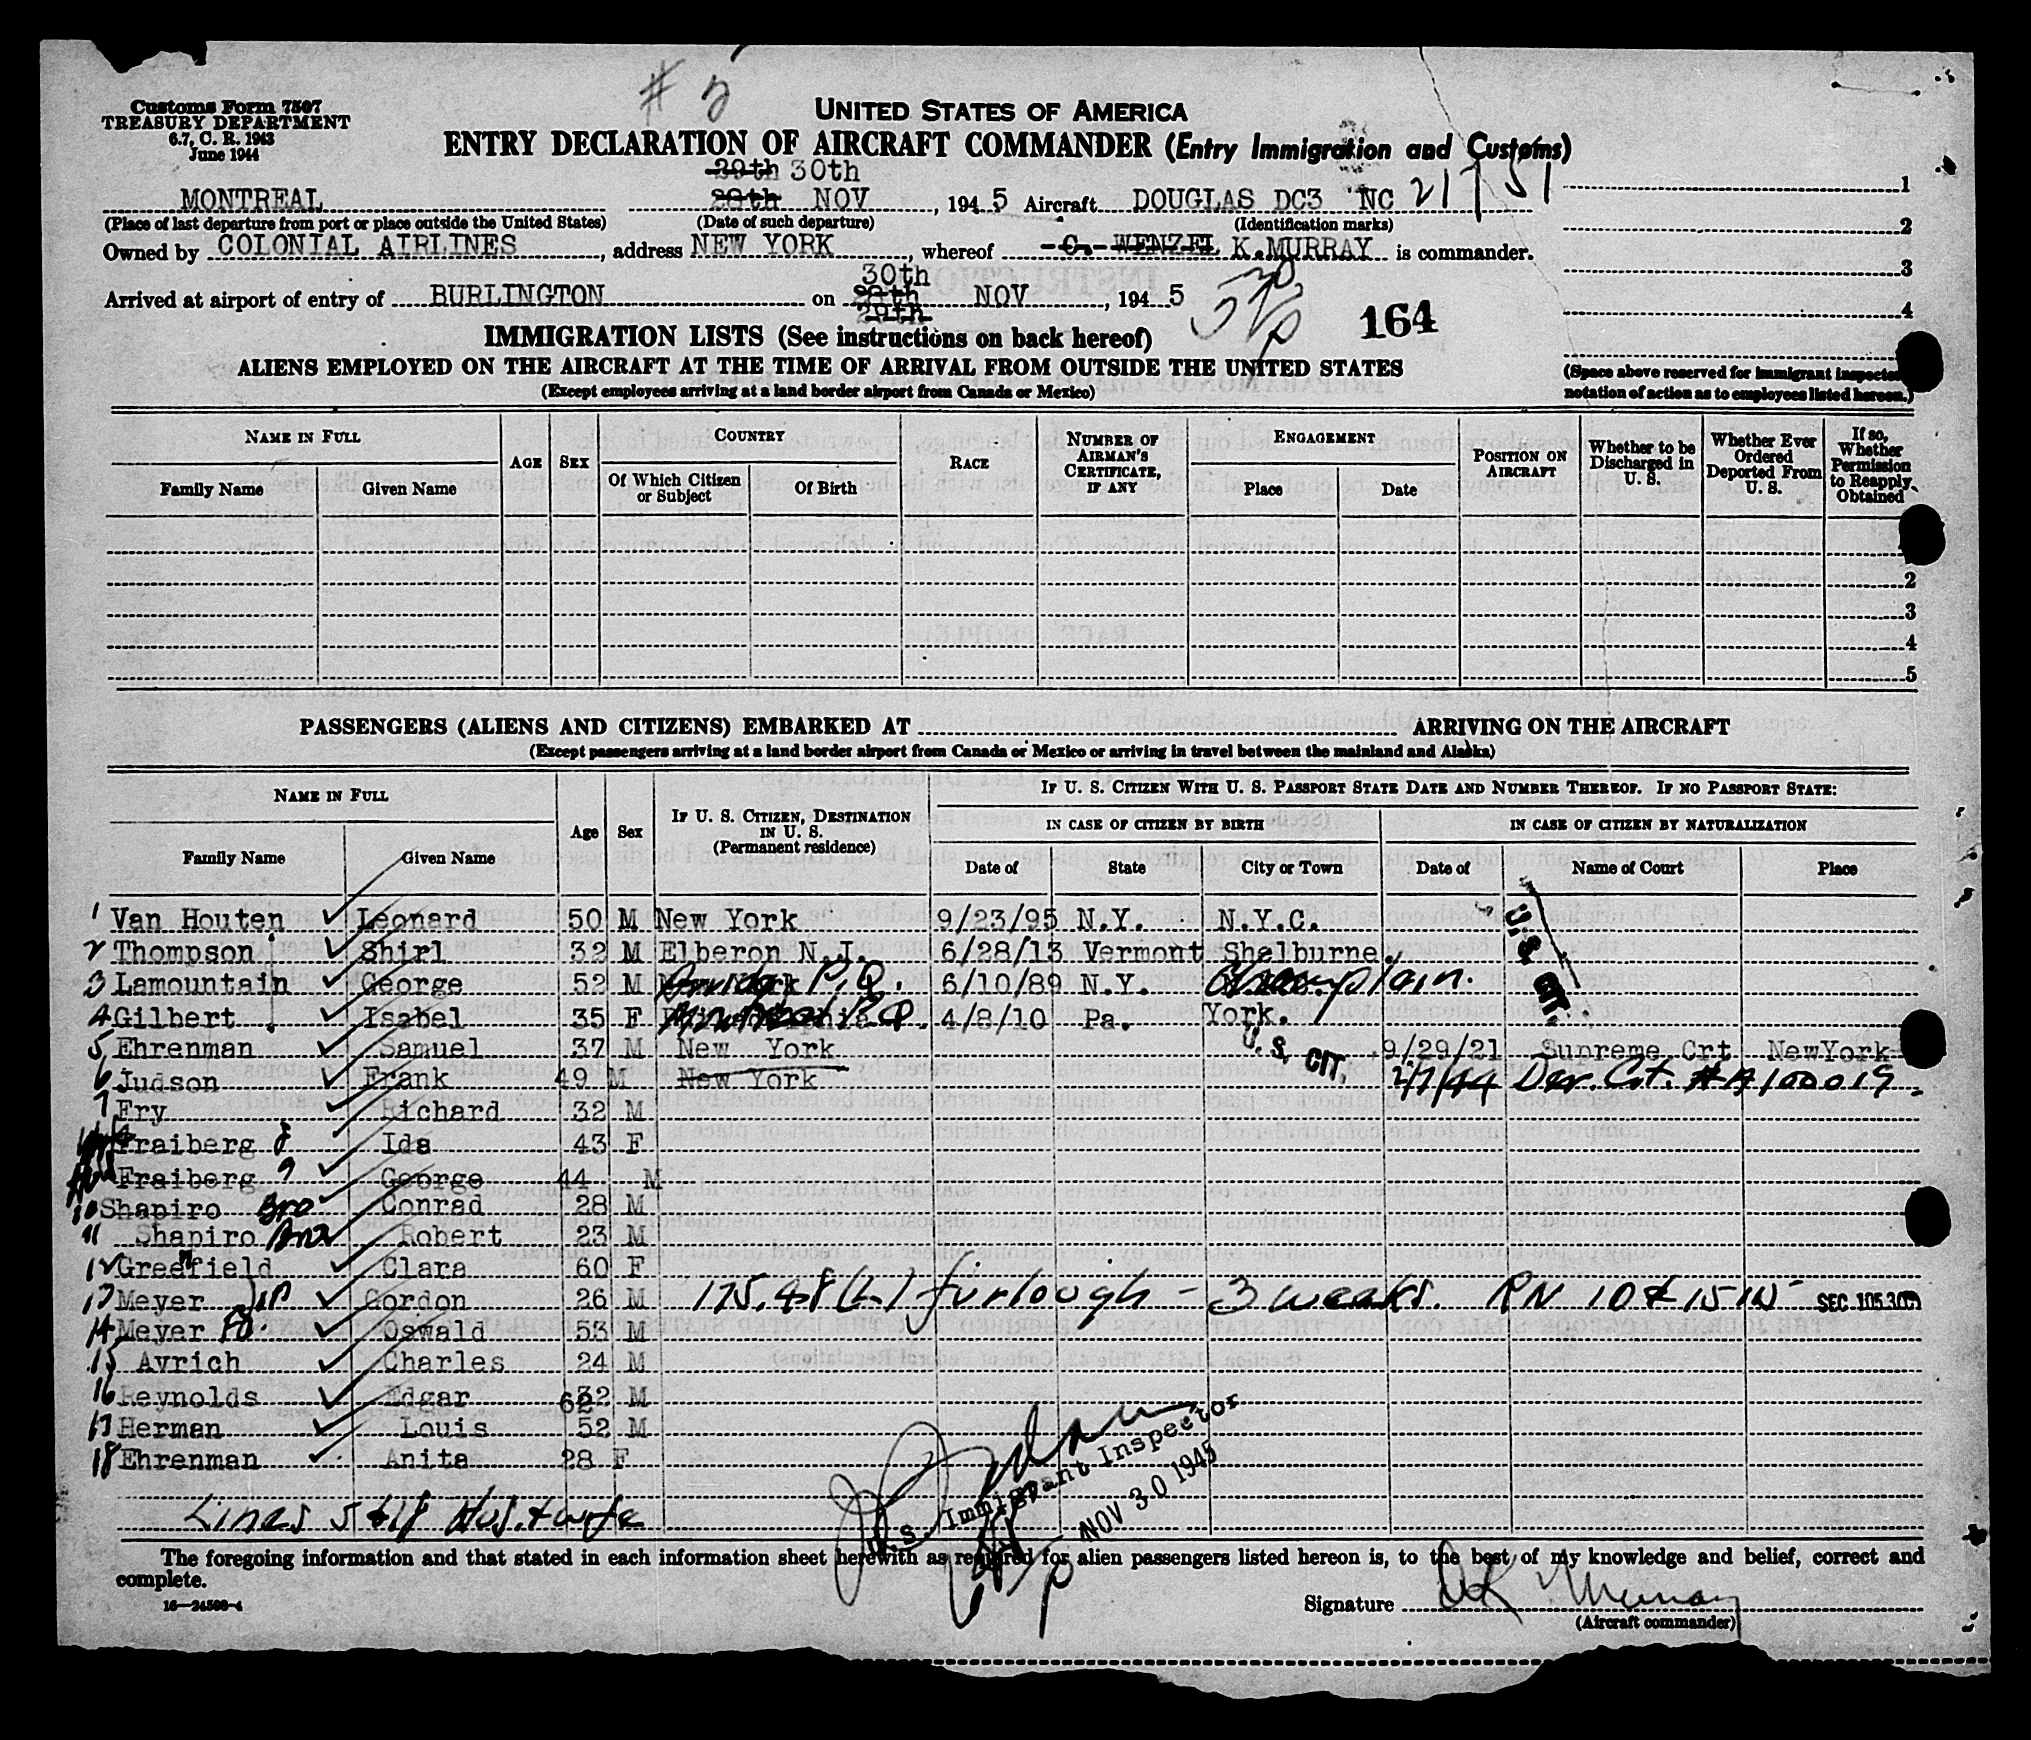 # 5
Customs Form 7507
TREASURY DEPARTMENT
6.7, C. R. 1943
June 1944
UNITED STATES OF AMERICA
ENTRY DECLARATION OF AIRCRAFT COMMANDER (Entry Immigration and Customs)
29th 30th
MONTREAL 28th NOV, 194 5 Aircraft DOUGLAS DC3 NC 21751
(Place of last departure from port or place outside the United States) (Date of such departure) (Identification marks)
Owned by COLONIAL AIRLINES, address NEW YORK, whereof C. WENZEL K.MURRAY is commander.
30th
Arrived at airport of entry of BURLINGTON on 28th NOV, 194 5
29th
164
1
2
3
4
(Space above reserved for immigrant inspector
notation of action as to employees listed hereon.)
IMMIGRATION LISTS (See instructions on back hereof)
ALIENS EMPLOYED ON THE AIRCRAFT AT THE TIME OF ARRIVAL FROM OUTSIDE THE UNITED STATES
(Except employees arriving at a land border airport from Canada or Mexico)
NAME IN FULL
Family Name Given Name
AGE SEX
COUNTRY
Of Which Citizen or Subject Of Birth
RACE
NUMBER OF AIRMAN'S CERTIFICATE, IF ANY
ENGAGEMENT
Place Date
POSITION ON AIRCRAFT
Whether to be Discharged in U. S.
Whether Ever Ordered Deported From U. S.
If so, Whether Permission to Reapply Obtained
2
3
4
5
PASSENGERS (ALIENS AND CITIZENS) EMBARKED AT ARRIVING ON THE AIRCRAFT
(Except passengers arriving at a land border airport from Canada or Mexico or arriving in travel between the mainland and Alaska)
NAME IN FULL
Family Name Given Name
Age Sex
IF U. S. CITIZEN, DESTINATION IN U. S.
(Permanent residence)
IF U. S. CITIZEN WITH U. S. PASSPORT STATE DATE AND NUMBER THEREOF. IF NO PASSPORT STATE:
IN CASE OF CITIZEN BY BIRTH IN CASE OF CITIZEN BY NATURALIZATION
Date of State City or Town Date of Name of Court Place
1 Van Houten Leonard 50 M New York 9/23/95 N.Y. N.Y.C.
2 Thompson Shirl 32 M Elberon N.J. 6/28/13 Vermont Shelburne.
3 Lamountain George 52 M P.Q. 6/10/89 N.Y. Champlain.
4 Gilbert Isabel 35 F Montreal P.Q. 4/8/10 Pa. York.
U. S. CIT.
5 Ehrenman Samuel 37 M New York U. S. CIT. 9/29/21 Supreme Crt NewYork
6 Judson Frank 49 M New York 2/7/44 Der. Crt. #A100019
7 Fry Richard 32 M
Fraiberg 8 Ida 43 F
Fraiberg 9 George 44 M
10 Shapiro Bro Conrad 28 M
11 Shapiro Bro Robert 23 M
12 Greenfield Clara 60 F
13 Meyer Gordon 26 M 175.48(L) furlough - 3 weeks. RN 10 & 15 W SEC 105.3(
14 Meyer Fa. Oswald 53 M
15 Avrich Charles 24 M
16 Reynolds Edgar 32 M
62
17 Herman Louis 52 M
18 Ehrenman Anita 28 F
Lines 5 & 18 Hus. & wife
U. S. Immigrant Inspector
NOV 30 1945
The foregoing information and that stated in each information sheet herewith as required for alien passengers listed hereon is, to the best of my knowledge and belief, correct and
complete.
16—24590-4
Signature K Murray
(Aircraft commander)